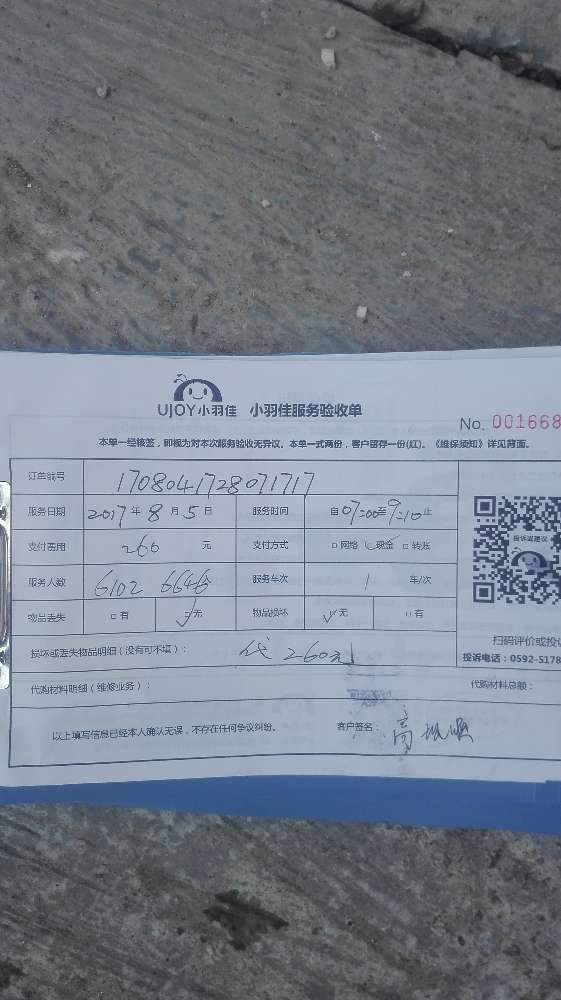 UJOY小羽佳 小羽佳服务验收单
No. 001668
本单一经核签，即视为对本次服务验收无异议。本单一式两份，客户留存一份(红)。《维保须知》详见背面。
订单编号 1708041728071717
服务日期 2017年8月5日 服务时间 自07:00至9:10止
支付费用 260元 支付方式 □网络 □现金 □转账
服务人数 6102 6646 服务车次 1 车/次
物品丢失 □有 □无 物品损坏 □无 □有
投诉或建议
扫码评价或投
投诉电话：0592-5178
损坏或丢失物品明细（没有可不填）： 260元
代购材料明细（维修业务）： 代购材料总额：
以上填写信息已经本人确认无误，不存在任何争议纠纷。 客户签名： 高